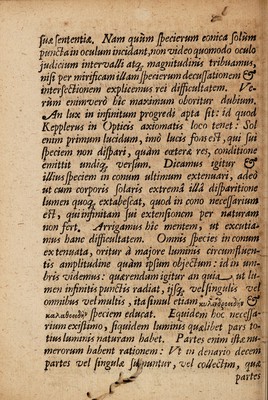 suæ sententiæ. Nam quùm specierum conica solùm
puncta in oculum incidant, non video quomodo oculo
judicium intervalli atq; magnitudinis tribuamus,
nisi per mirificam illam specierum decussationem &
intersectionem explicemus rei difficultatem. Ve-
rùm enimverò hic maximum oboritur dubium.
An lux in infinitum progredi apta sit: id quod
Kepplerus in Opticis axiomatis loco tenet: Sol
enim primum lucidum, imò lucis fons est, qui sui
speciem non dispari, quàm cæteræ res, conditione
emittit undiq; versum. Dicamus igitur &
illius speciem in conum ultimum extenuari, adeò
ut cum corporis solaris extremâ illâ disparitione
lumen quoq; extabescat, quod in cono necessarium
est, qui infinitam sui extensionem per naturam
non fert. Arrigamus hîc mentem, ut excutia-
mus hanc difficultatem. Omnis species in conum
extenuata, oritur à majore luminis circumfluen-
tis amplitudine quàm ipsum objectum: id in um-
bris videmus: quærendum igitur an quia ut lu-
men infinitis punctis radiat, ipsq; vel singulis vel
omnibus vel multis, ita simul etiam &
speciem educat. Equidem hoc necessa-
rium existimo, siquidem luminis quælibet pars to-
tius luminis naturam habet. Partes enim istæ nu-
merorum habent rationem: Vt in denario decem
partes vel singulæ sumuntur, vel collectim, quæ
partes